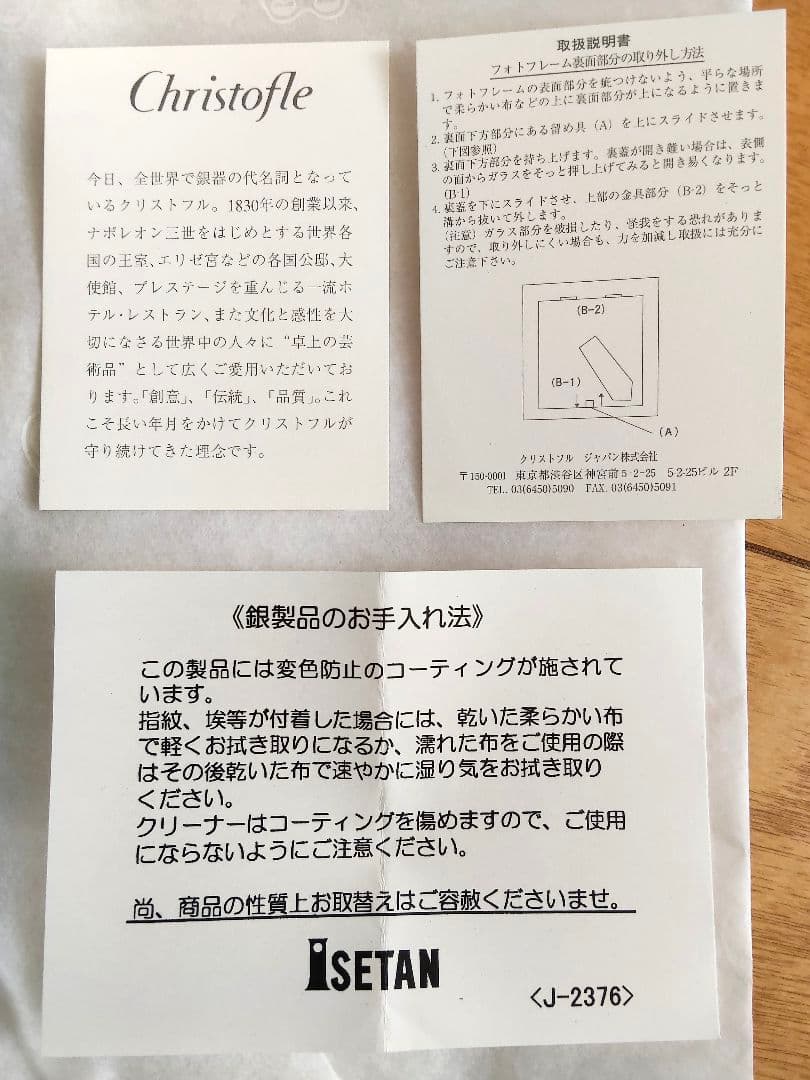 Christofle
今日、全世界で銀器の代名詞となって
いるクリストフル。1830年の創業以来、
ナポレオン三世をはじめとする世界各
国の王室、エリゼ宮などの各国公邸、大
使館、プレステージを重んじる一流ホ
テル・レストラン、また文化と感性を大
切になさる世界中の人々に“卓上の芸
術品”として広くご愛用いただいてお
ります。「創意」、「伝統」、「品質」。これ
こそ長い年月をかけてクリストフルが
守り続けてきた理念です。
取扱説明書
フォトフレーム裏面部分の取り外し方法
1. フォトフレームの表面部分を疵つけないよう、平らな場所
で柔らかい布などの上に裏面部分が上になるように置きま
す。
2. 裏面下方部分にある留め具（A）を上にスライドさせます。
(下図参照)
3. 裏面下方部分を持ち上げます。裏蓋が開き難い場合は、表側
の面からガラスをそっと押し上げてみると開き易くなります。
(B-1)
4. 裏蓋を下にスライドさせ、上部の金具部分（B-2）をそっと
溝から抜いて外します。
(注意）ガラス部分を破損したり、怪我をする恐れがありま
すので、取り外しにくい場合も、力を加減し取扱には充分に
ご注意下さい。
(B-2)
(B-1)
(A)
クリストフル ジャパン株式会社
〒150-0001 東京都渋谷区神宮前5-2-25 5-2-25ビル 2F
TEL. 03(6450)5090 FAX. 03(6450)5091
《銀製品のお手入れ法》
この製品には変色防止のコーティングが施されて
います。
指紋、埃等が付着した場合には、乾いた柔らかい布
で軽くお拭き取りになるか、濡れた布をご使用の際
はその後乾いた布で速やかに湿り気をお拭き取り
ください。
クリーナーはコーティングを傷めますので、ご使用
にならないようにご注意ください。
尚、商品の性質上お取替えはご容赦くださいませ。
ISETAN
<J-2376>